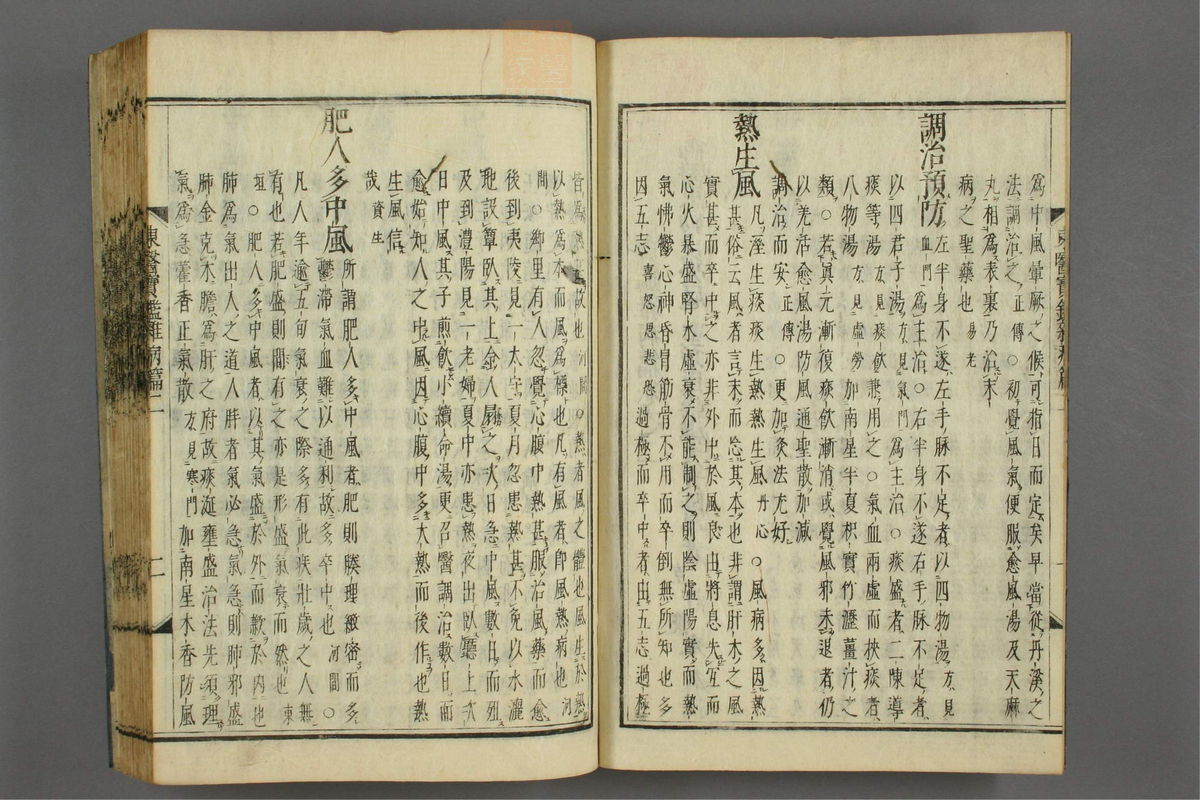 為中風暈厥之候可指日而定矣早當從丹溪之
法調治之正傳○初覺風氣便服愈風湯及天麻
丸相為表裏乃治未
病之聖藥也易老
調治預防左半身不遂左手脉不足者以四物湯方見
血門為主治○右半身不遂右手脉不足者
以四君子湯方見氣門為主治○痰盛者二陳導
痰等湯方見痰飲兼用之○氣血兩虛而挾痰者
八物湯方見虛勞加南星半夏枳實竹瀝薑汁之
類○若眞元漸復痰飲漸消或覺風邪未退者仍
以羗活愈風湯防風通聖散加減
調治而安正傳○更加灸法尤好
熱生風凡濕生痰痰生熱熱生風丹心○風病多因熱
甚俗云風者言末而忘其本也非謂肝木之風
實甚而卒中之亦非外中於風良由將息失宜而
心火暴盛腎水虛衰不能制之則陰虛陽實而熱
氣怫鬱心神昏冐筋骨不用而卒倒無所知也多
因五志喜怒思悲恐過極而卒中者由五志過極
皆為熱甚故也河間○熱者風之體也風生於熱
以熱為本而風為標也凡有風者卽風熱病也河
間○鄉里有人忽覺心腹中熱甚服治風藥而愈
後到夷陵見一太守夏月忽患熱甚不免以水灑
地設簟臥其上令人扇之次日急中風數日而歿
及到澧陽見一老婦夏中亦患熱夜出臥廳上次
日中風其子煎飮小續命湯更召醫調治數日而
愈始知人之中風因心腹中多大熱而後作也熱
生風信
哉資生
肥人多中風所謂肥人多中風者肥則腠理緻密而多
鬱滯氣血難以通利故多卒中也河間○
凡人年逾五旬氣衰之際多有此疾壯歲之人無
有也若肥盛則間有之亦是形盛氣衰而然也東
垣○肥人多中風者以其氣盛於外而歉於內也
肺爲氣出入之道人肥者氣必急氣急則肺邪盛
肺金克木膽為肝之府故痰涎壅盛治法先須理
氣為急藿香正氣散方見寒門加南星木香防風
東醫寶鑑雜病篇二
二